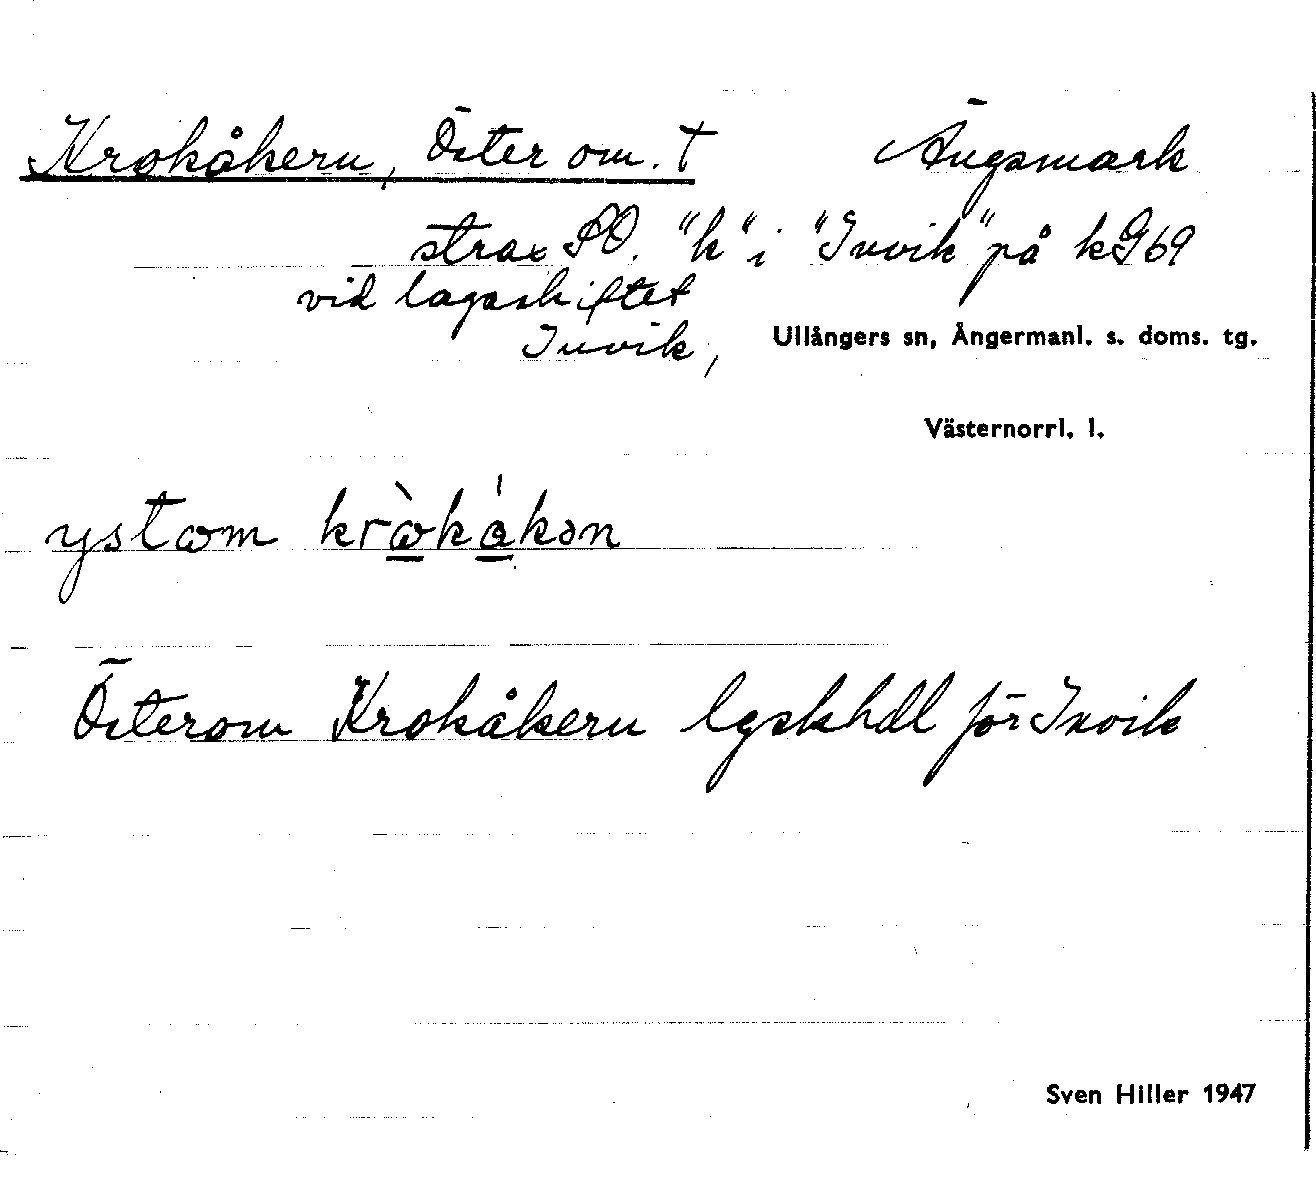 Krokåkern, Öster om. † Ängsmark
strax SO. "k" i "Invik" på kG69
vid lagaskiftet
Invik, Ullångers sn, Ångermanl. s. doms. tg.
Västernorrl. l.
ystom kròkákən
Österom Krokåkern lgskhdl för Invik
Sven Hiller 1947